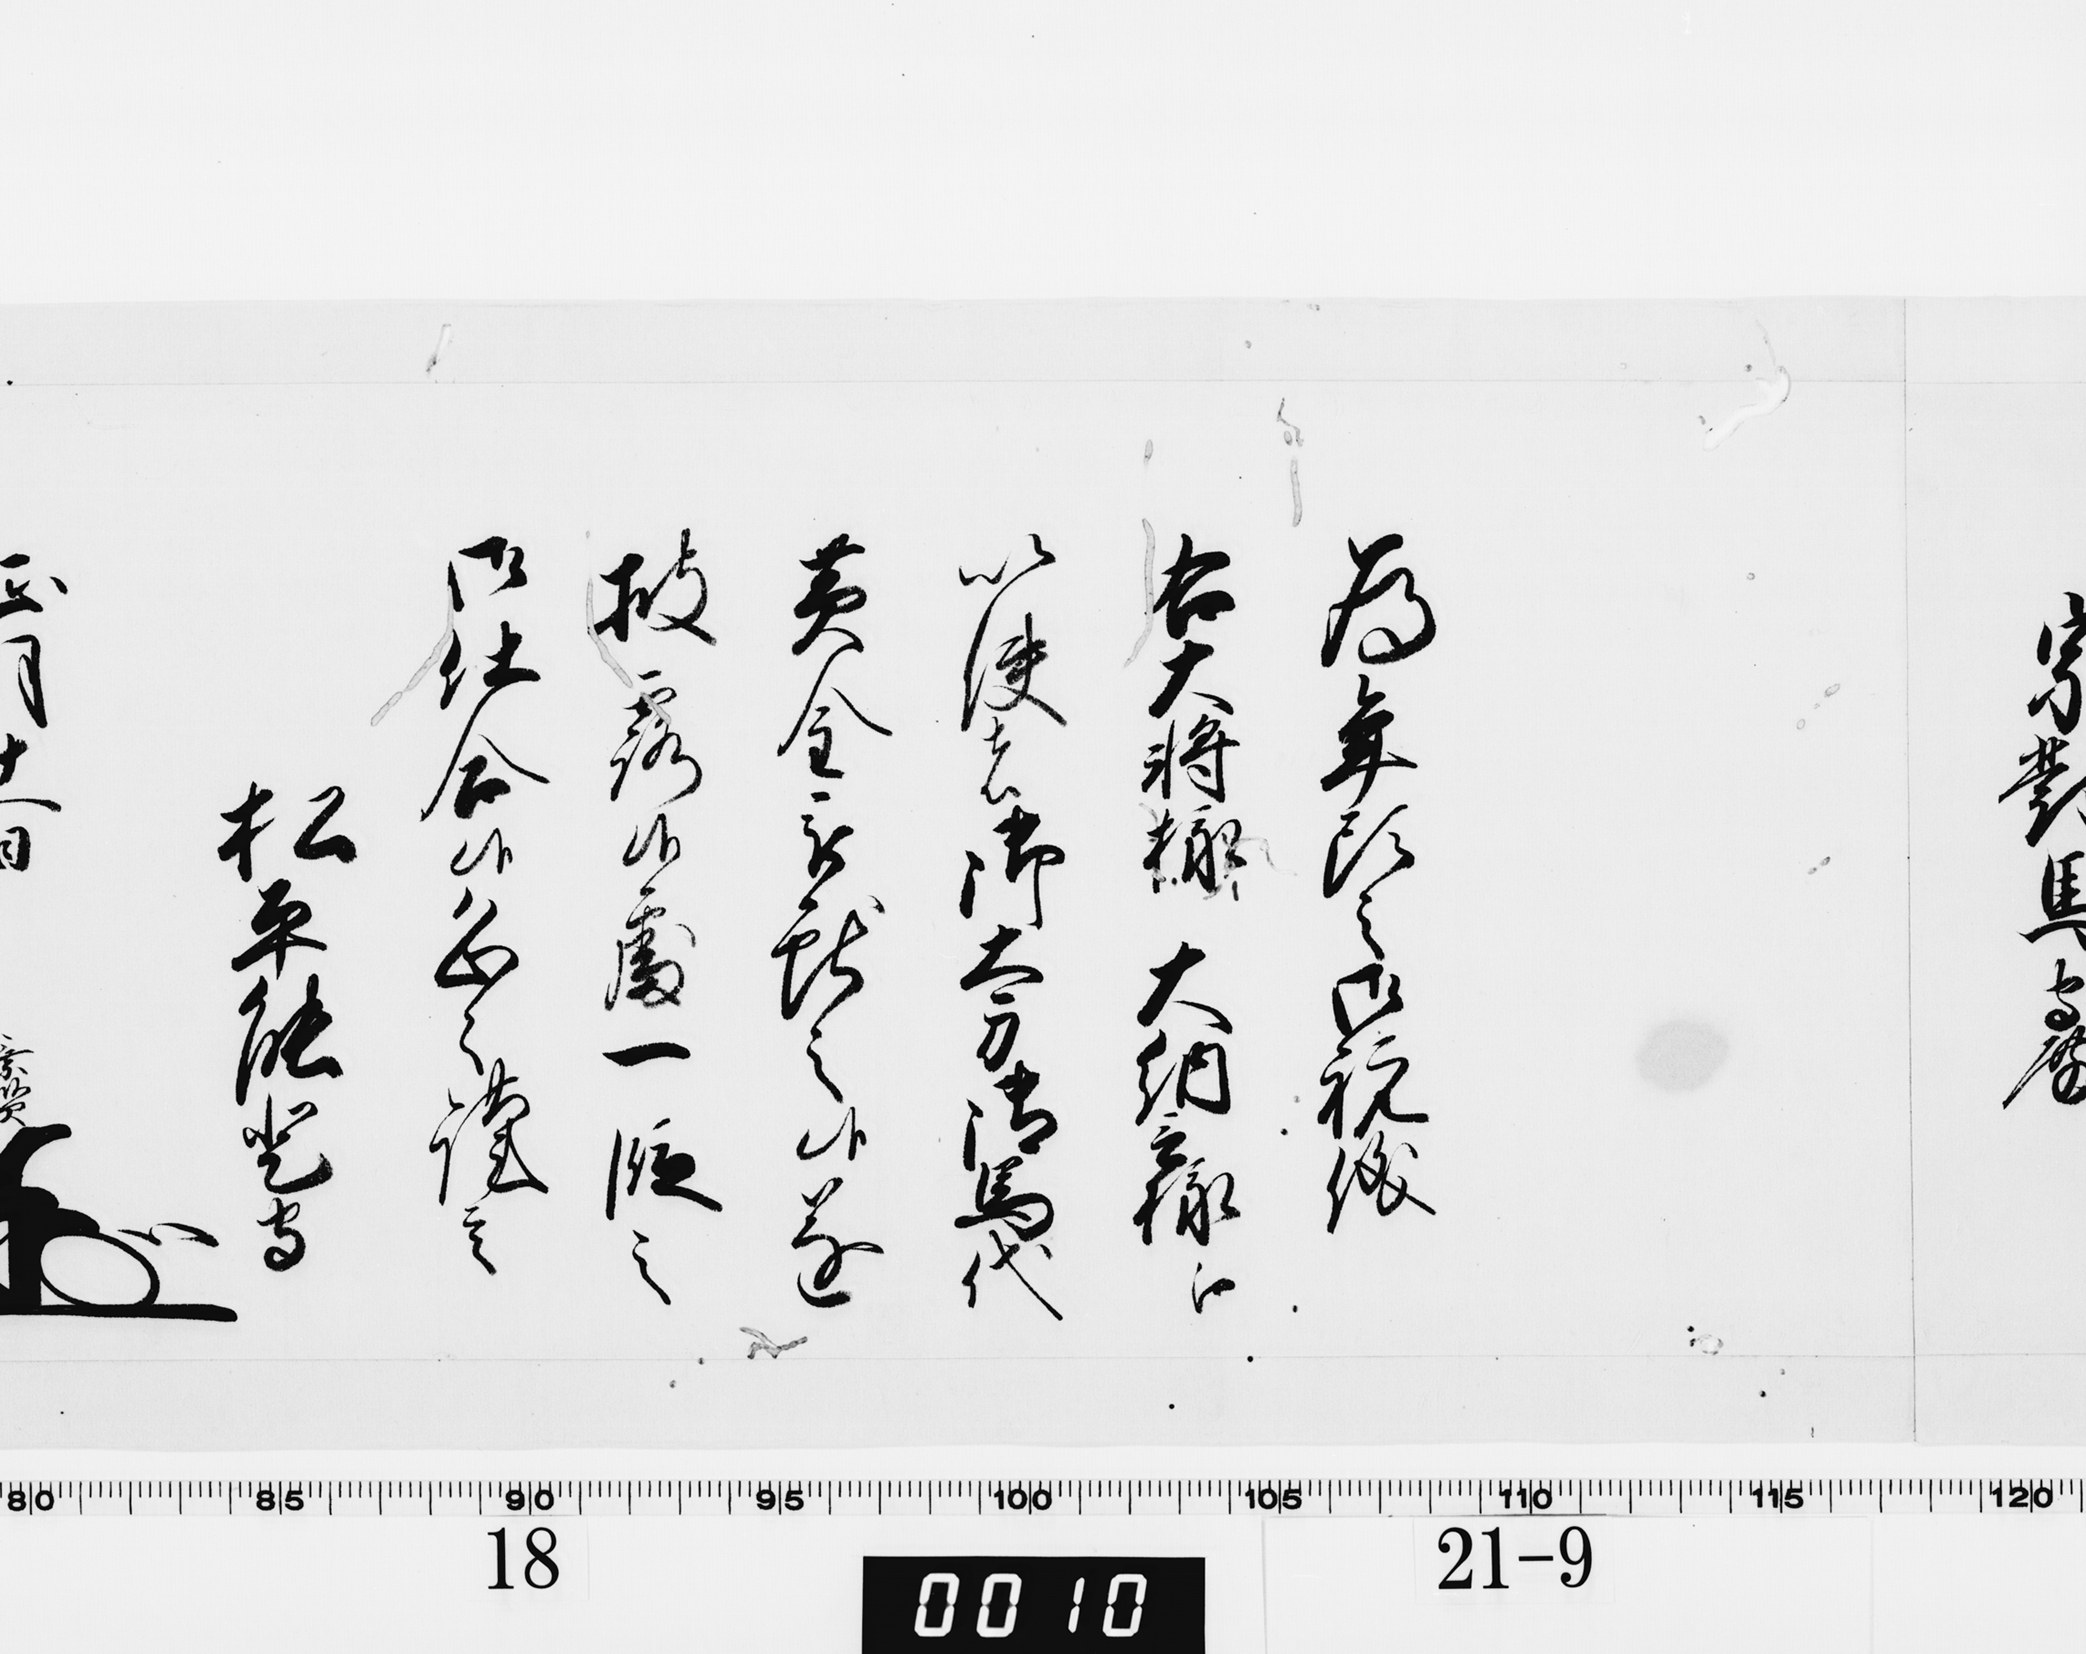 宗對馬守殿
為年頭之御祝儀
右大将様 大納言様江
以使者御太刀御馬代
黄金被獻之候遂
披露候處一段之
御仕合候恐々謹言
松平能登守
正月十一日
乗賢
80 85 90 95 100 105 110 115 120
18 0010 21-9